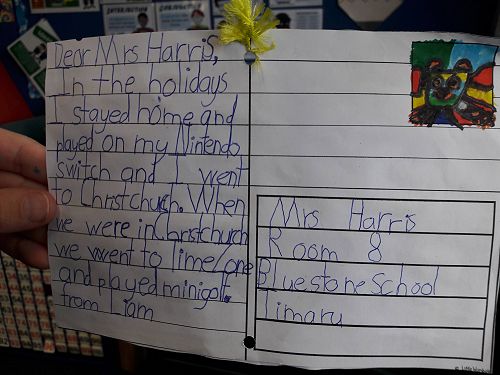 Dear Mrs Harris,
In the holidays
I stayed home and
played on my Nintendo
switch and I went
to Christchurch. When
we were in Christchurch
we went to Timezone
and played minigolf.
from Liam
Mrs Harris
Room 8
Bluestone School
Timaru